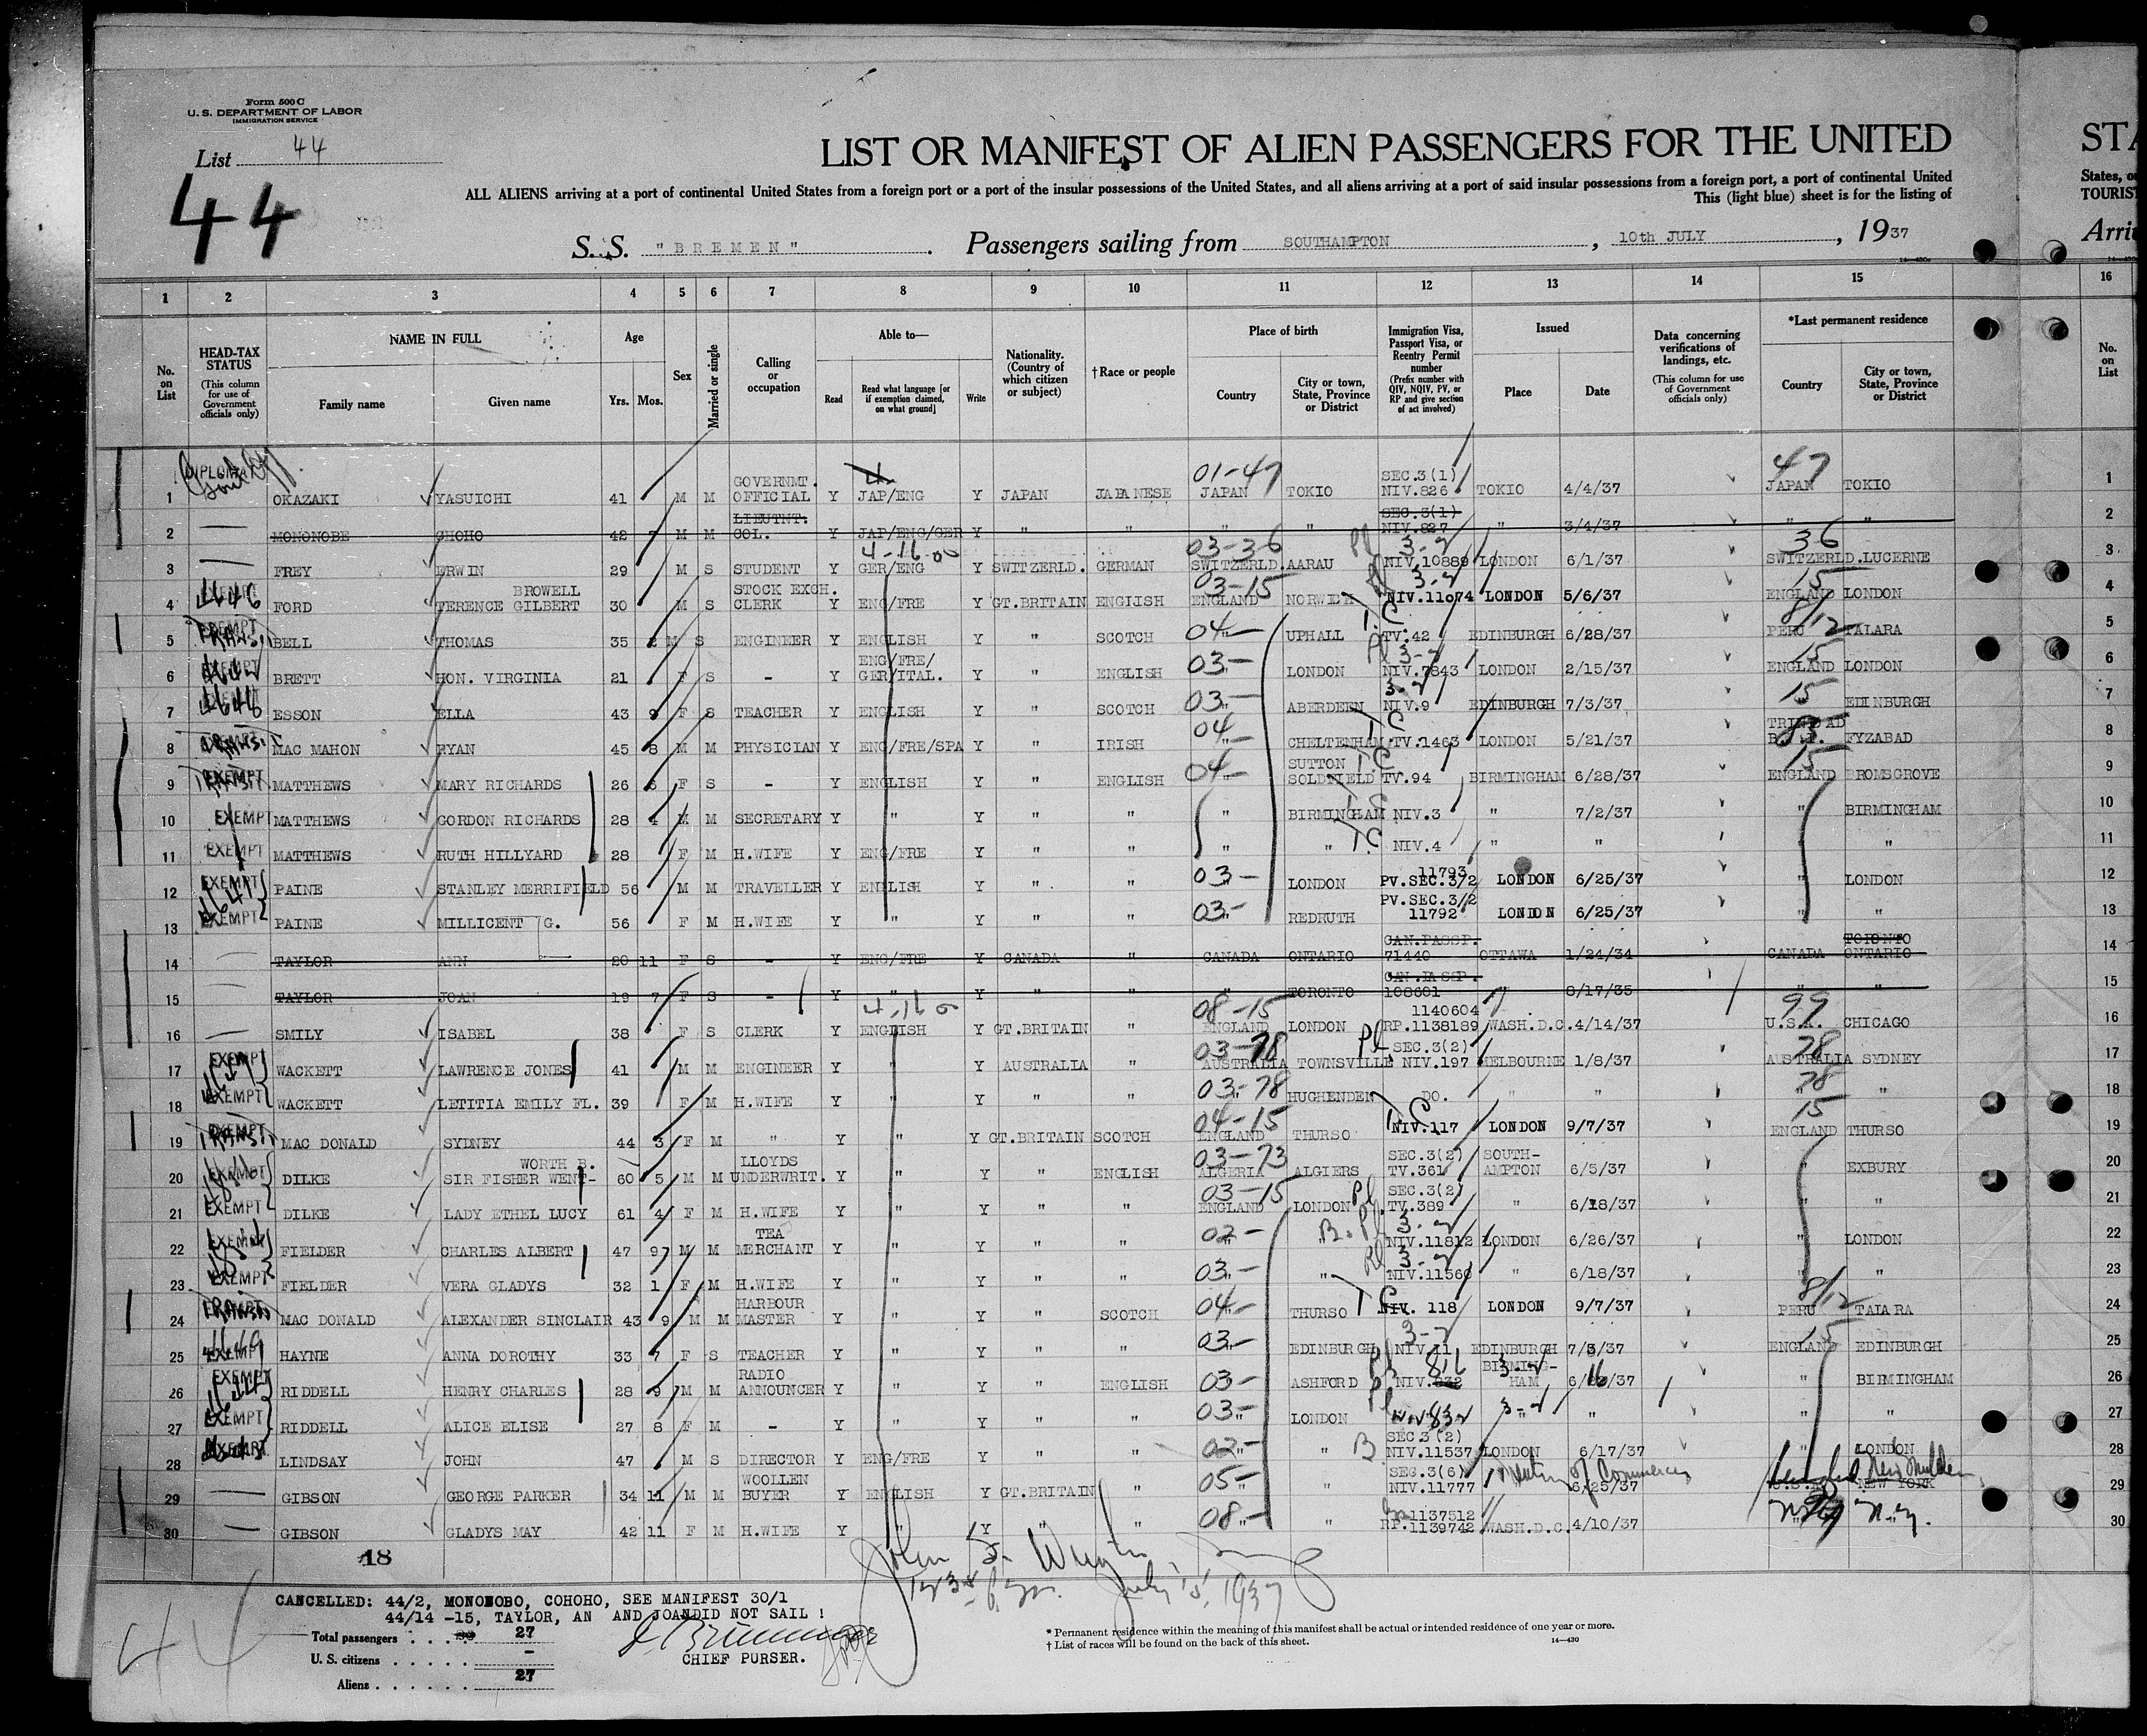 Form 500 C
U. S. DEPARTMENT OF LABOR
IMMIGRATION SERVICE
List 44
44
LIST OR MANIFEST OF ALIEN PASSENGERS FOR THE UNITED
STA
ALL ALIENS arriving at a port of continental United States from a foreign port or a port of the insular possessions of the United States, and all aliens arriving at a port of said insular possessions from a foreign port, a port of continental United
This (light blue) sheet is for the listing of
States, o
TOURIST
S. S. "BREMEN". Passengers sailing from SOUTHAMPTON, 10th JULY, 1937
Arri
1 2 3 4 5 6 7 8 9 10 11 12 13 14 15 16
No. on List
HEAD-TAX STATUS (This column for use of Government officials only)
NAME IN FULL Family name Given name
Age Yrs. Mos.
Sex
Married or single
Calling or occupation
Able to— Read Read what language [or if exemption claimed, on what ground] Write
Nationality. (Country of which citizen or subject)
† Race or people
Place of birth Country City or town, State, Province or District
Immigration Visa, Passport Visa, or Reentry Permit number (Prefix number with QIV, NQIV, PV, or RP and give section of act involved)
Issued Place Date
Data concerning verifications of landings, etc. (This column for use of Government officials only)
*Last permanent residence Country City or town, State, Province or District
No. on List
1 OKAZAKI YASUICHI 41 M M GOVERNMT. OFFICIAL Y JAP/ENG Y JAPAN JAPANESE 01-47 JAPAN TOKIO SEC.3(1) NIV.826 TOKIO 4/4/37 47 JAPAN TOKIO 1
2 MONONOBE CHOHO 42 7 M M LIEUTNT. COL. Y JAP/ENG/GER Y " " " " SEC.3(1) NIV.827 " 3/4/37 " " 2
3 FREY ERWIN 29 M S STUDENT Y GER/ENG Y SWITZERLD. GERMAN 03-36 SWITZERLD. AARAU 3-2 NIV.10889 LONDON 6/1/37 36 SWITZERLD. LUCERNE 3
4 FORD BROWELL TERENCE GILBERT 30 M S STOCK EXCH. CLERK Y ENG/FRE Y GT.BRITAIN ENGLISH 03-15 ENGLAND NORWICH 3-2 NIV.11074 LONDON 5/6/37 15 ENGLAND LONDON 4
5 BELL THOMAS 35 2 M S ENGINEER Y ENGLISH Y " SCOTCH 04- UPHALL T.C. TV.42 EDINBURGH 6/28/37 8/12 PERU TALARA 5
6 BRETT HON. VIRGINIA 21 F S - Y ENG/FRE/ GER/ITAL. Y " ENGLISH 03- LONDON 3-2 NIV.7843 LONDON 2/15/37 15 ENGLAND LONDON 6
7 ESSON ELLA 43 9 F S TEACHER Y ENGLISH Y " SCOTCH 03- ABERDEEN 3-2 NIV.9 EDINBURGH 7/3/37 15 EDINBURGH 7
8 MAC MAHON RYAN 45 8 M M PHYSICIAN Y ENG/FRE/SPA Y " IRISH 04 CHELTENHAM TC TV.1463 LONDON 5/21/37 TRINIDAD FYZABAD 8
9 EXEMPT MATTHEWS MARY RICHARDS 26 6 F S - Y ENGLISH Y " ENGLISH 04- SUTTON SOLDFIELD T.C TV.94 BIRMINGHAM 6/28/37 15 ENGLAND BROMSGROVE 9
10 EXEMPT MATTHEWS GORDON RICHARDS 28 4 M M SECRETARY Y " Y " " " BIRMINGHAM TC NIV.3 " 7/2/37 " BIRMINGHAM 10
11 EXEMPT MATTHEWS RUTH HILLYARD 28 F M H.WIFE Y ENG/FRE Y " " " " TC NIV.4 " " " " 11
12 EXEMPT PAINE STANLEY MERRIFIELD 56 M M TRAVELLER Y ENGLISH Y " " 03- LONDON 11793 PV.SEC.3/2 LONDON 6/25/37 " LONDON 12
13 EXEMPT PAINE MILLICENT G. 56 F M H.WIFE Y " Y " " 03- REDRUTH PV.SEC.3/2 11792 LONDON 6/25/37 " " 13
14 TAYLOR ANN 20 11 F S - Y ENG/FRE Y CANADA " CANADA ONTARIO CAN.PASSP. 71440 OTTAWA 1/24/34 CANADA TORONTO ONTARIO 14
15 TAYLOR JOAN 19 7 F S - Y " Y " " " TORONTO CAN.PASSP. 108601 " 8/17/35 " " 15
16 SMILY ISABEL 38 F S CLERK Y ENGLISH Y GT.BRITAIN " 08-15 ENGLAND LONDON 1140604 RP.1138189 WASH.D.C. 4/14/37 99 U.S.A. CHICAGO 16
17 EXEMPT WACKETT LAWRENCE JONES 41 M M ENGINEER Y " Y AUSTRALIA " 03-78 AUSTRALIA TOWNSVILLE SEC.3(2) NIV.197 MELBOURNE 1/8/37 78 AUSTRALIA SYDNEY 17
18 EXEMPT WACKETT LETITIA EMILY FL. 39 F M H.WIFE Y " Y " " 03-78 HUGHENDEN DO. " " 78 " 18
19 EXEMPT MAC DONALD SYDNEY 44 3 F M " Y " Y GT.BRITAIN SCOTCH 04-15 ENGLAND THURSO T.C. NIV.117 LONDON 9/7/37 15 ENGLAND THURSO 19
20 EXEMPT DILKE WORTH B. SIR FISHER WENT- 60 5 M M LLOYDS UNDERWRIT. Y " Y " ENGLISH 03-73 ALGERIA ALGIERS SEC.3(2) TV.361 SOUTH- AMPTON 6/5/37 " EXBURY 20
21 EXEMPT DILKE LADY ETHEL LUCY 61 4 F M H.WIFE Y " Y " " 03-15 ENGLAND LONDON SEC.3(2) TV.389 " 6/18/37 " " 21
22 EXEMPT FIELDER CHARLES ALBERT 47 9 M M TEA MERCHANT Y " Y " " 02- " 3-2 NIV.11812 LONDON 6/26/37 " LONDON 22
23 EXEMPT FIELDER VERA GLADYS 32 1 F M H.WIFE Y " Y " " 03- " 3-2 NIV.11560 " 6/18/37 " " 23
24 MAC DONALD ALEXANDER SINCLAIR 43 9 M M HARBOUR MASTER Y " Y " SCOTCH 04- THURSO T.C. NIV. 118 LONDON 9/7/37 8/12 PERU TALARA 24
25 EXEMPT HAYNE ANNA DOROTHY 33 7 F S TEACHER Y " Y " " 03- EDINBURGH 3-2 NIV.11 EDINBURGH 7/3/37 15 ENGLAND EDINBURGH 25
26 EXEMPT RIDDELL HENRY CHARLES 28 9 M M RADIO ANNOUNCER Y " Y " ENGLISH 03- ASHFORD 816 NIV.832 BIRMING- HAM 16 " BIRMINGHAM 26
27 EXEMPT RIDDELL ALICE ELISE 27 8 F M - Y " Y " " 03- LONDON 832 3-2 " " " " 27
28 EXEMPT LINDSAY JOHN 47 M S DIRECTOR Y ENG/FRE Y " " 02- " B SEC.3(2) NIV.11537 LONDON 6/17/37 " LONDON 28
29 GIBSON GEORGE PARKER 34 11 M M WOOLLEN BUYER Y ENGLISH Y GT.BRITAIN " 05- " " SEC.3(6) NIV.11777 6/25/37 U.S.A. NEW YORK 29
30 GIBSON GLADYS MAY 42 11 F M H.WIFE Y " Y " " 08- " " 1137512 RP.1139742 WASH.D.C. 4/10/37 N.Y. 30
18
July 15, 1937
CANCELLED: 44/2, MONONOBO, COHOHO, SEE MANIFEST 30/1
44/14 -15, TAYLOR, AN AND JOANDID NOT SAIL !
Total passengers . . . 30 27
U. S. citizens . . . . . -
Aliens . . . . . . 27
CHIEF PURSER.
* Permanent residence within the meaning of this manifest shall be actual or intended residence of one year or more.
† List of races will be found on the back of this sheet.
14—430
44